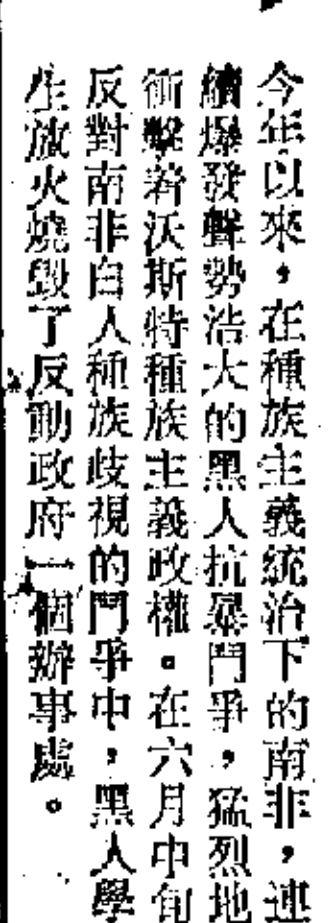 今年以來，在種族主義統治下的南非，連
續爆發聲勢浩大的黑人抗暴鬥爭，猛烈地
衝擊着沃斯特種族主義政權。在六月中旬
反對南非白人種族歧視的鬥爭中，黑人學
生放火燒毀了反動政府一個辦事處。